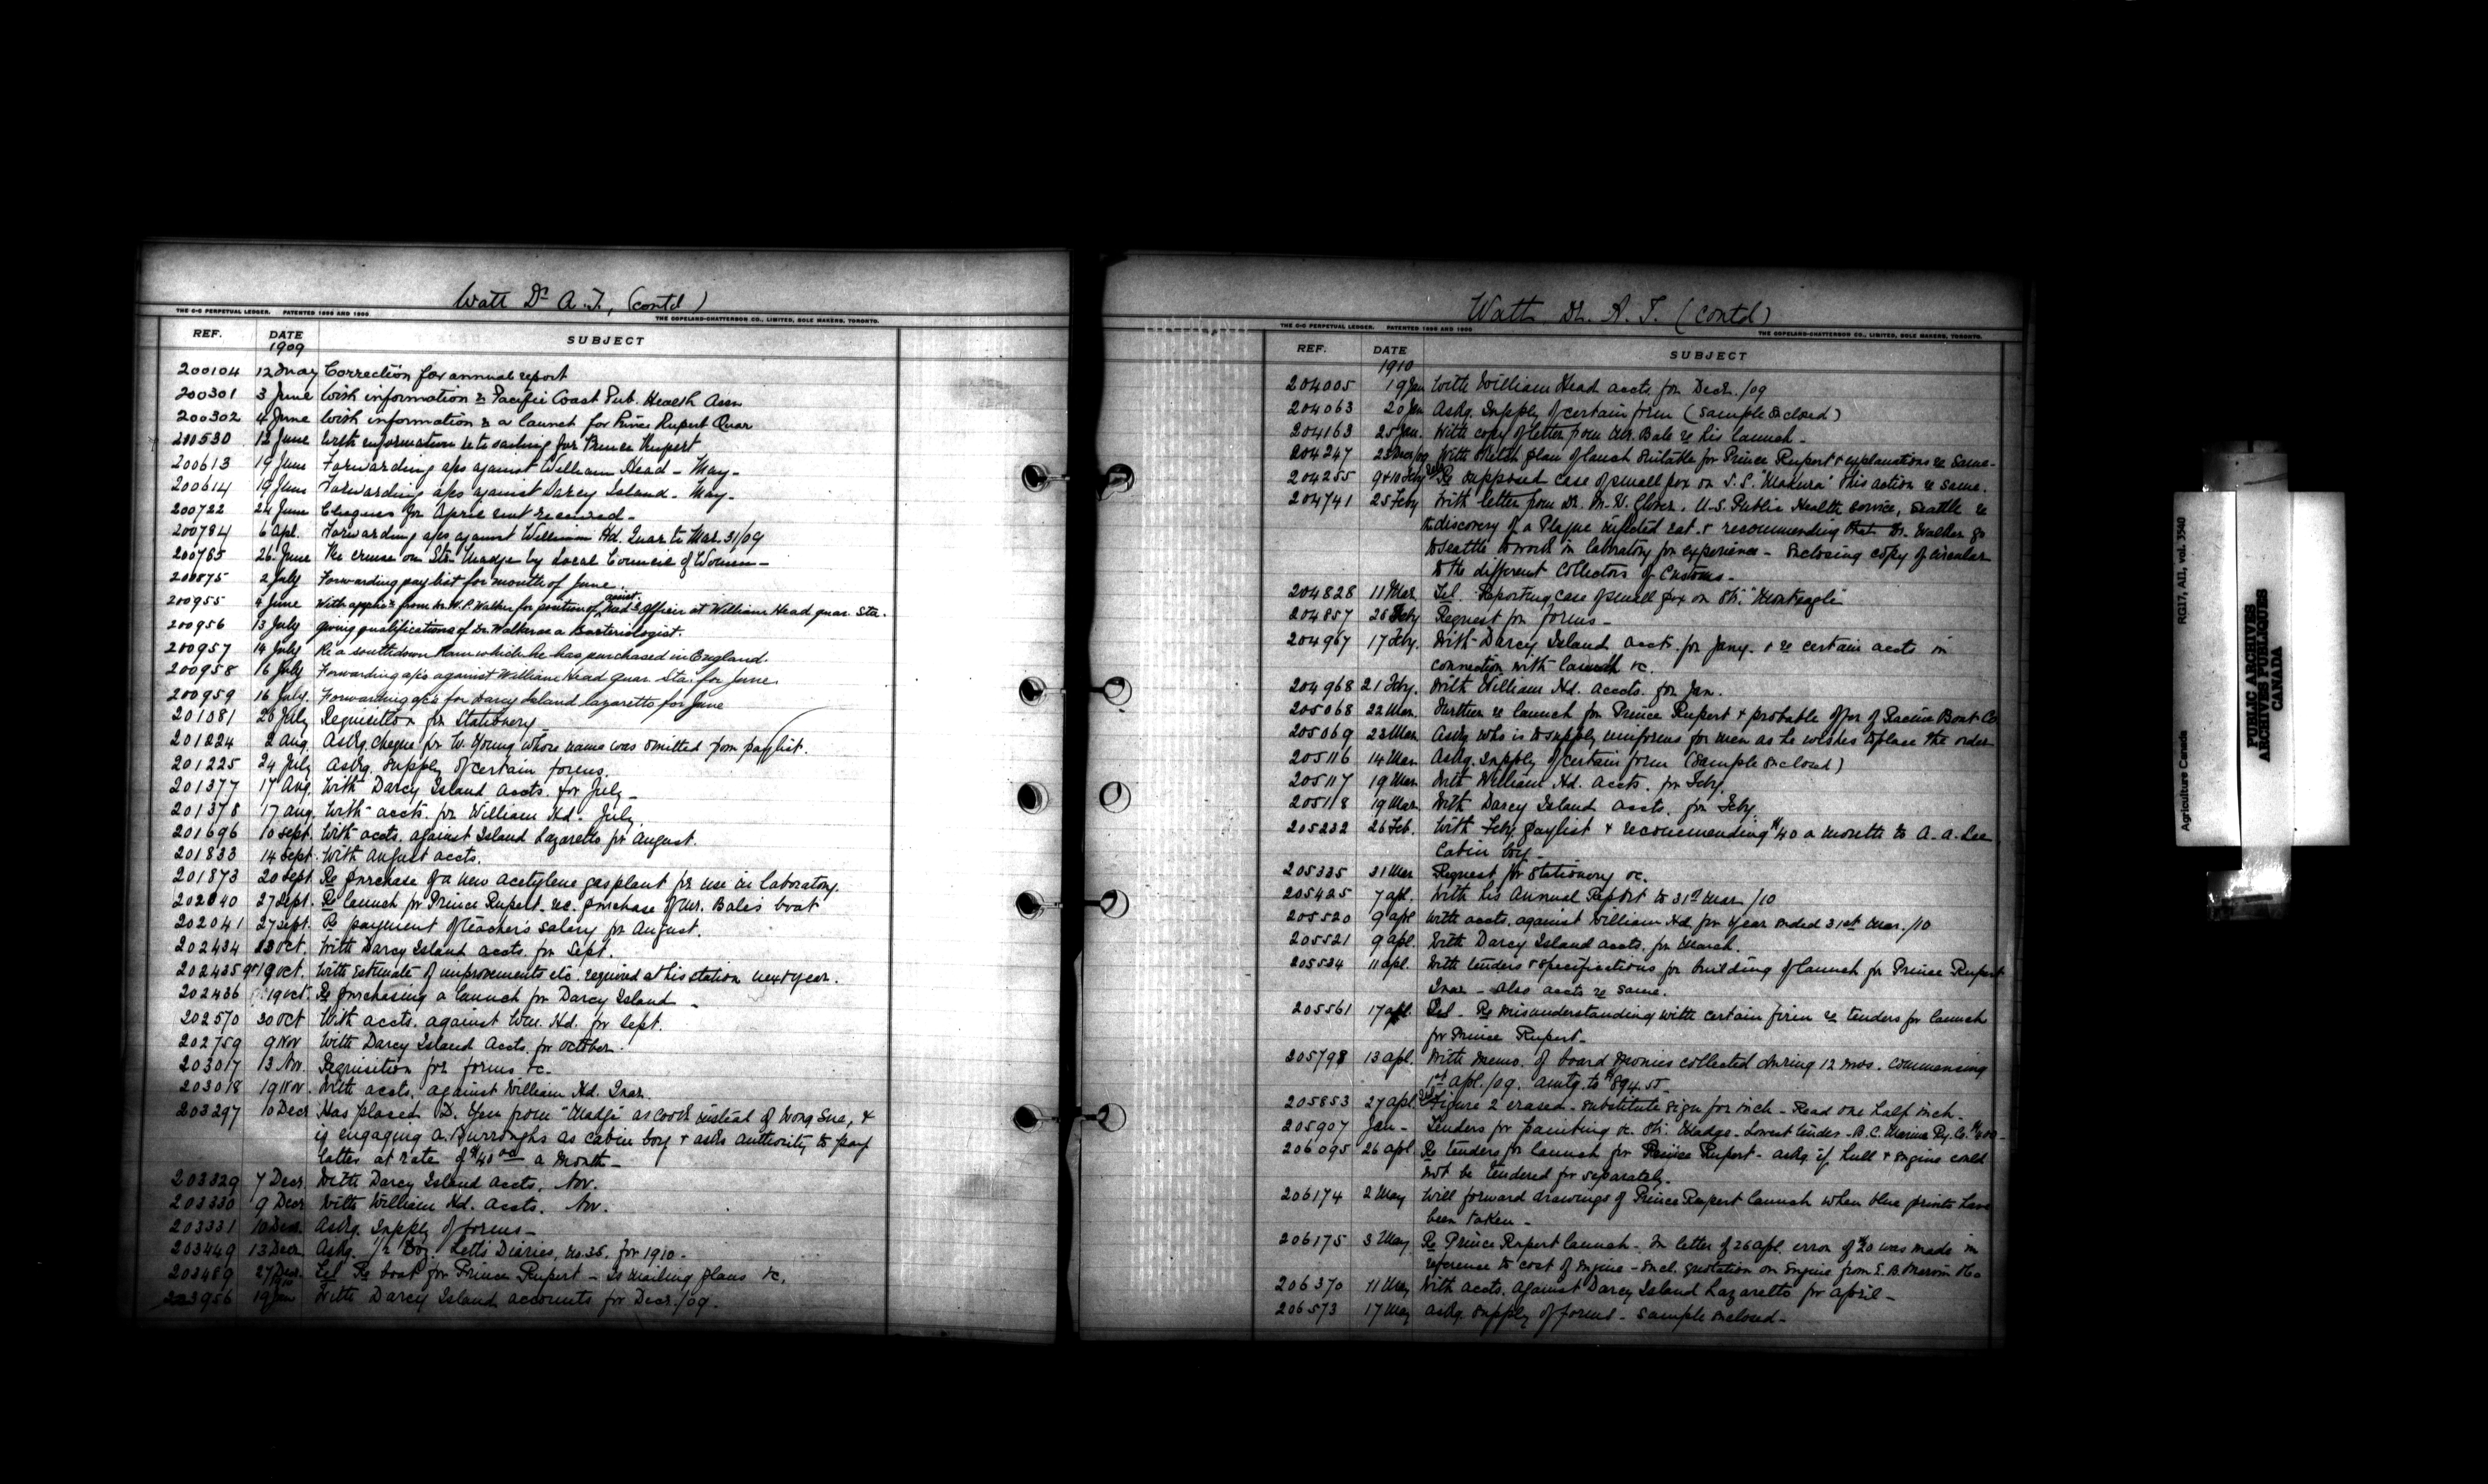 Watt Dr A. T., (contd)
THE C-C PERPETUAL LEDGER. PATENTED 1896 AND 1900
THE COPELAND-CHATTERSON CO., LIMITED, SOLE MAKERS, TORONTO.
REF. DATE SUBJECT
1909
200104 12 May Correction for annual report
200301 3 June With information re Pacific Coast Pub. Health Assn
200302 4 June With information re a launch for Prince Rupert Quar
200530 12 June With information re to sailing for Prince Rupert
200613 19 June Forwarding a/cs against William Head - May -
200614 19 June Forwarding a/cs against Darcy Island - May -
200722 24 June Cheques for April not received -
200784 6 Apl. Forwarding a/cs against William Hd. Quar to Mar. 31/09
200785 26 June Re cruise on Str. Madge by Local Council of Women -
200875 2 July Forwarding pay list for month of June.
200955 4 June With applic'n from Dr W. P. Walker for position of assist. Med'l Officer at William Head quar. Sta.
200956 13 July Giving qualifications of Dr Walker as a Bacteriologist.
200957 14 July Re a southdown Ram which he has purchased in England.
200958 16 July Forwarding a/cs against William Head Quar. Sta. for June.
200959 16 July Forwarding a/cs for Darcy Island lazaretto for June
201081 26 July Requisition for Stationery
201224 2 Aug. Askg. cheque for W. Young whose name was omitted from paylist.
201225 24 July Askg. supply of certain forms.
201377 17 Aug. With Darcy Island accts. for July -
201378 17 Aug. With accts. for William Hd. July.
201696 10 Sept. With accts. against Island Lazaretto for August.
201833 14 Sept. With August accts.
201873 20 Sept Re purchase of a new acetylene gas plant for use in laboratory.
202040 27 Sept. Re launch for Prince Rupert. rec. purchase of Mr. Bale's boat
202041 27 Sept. Re payment of teachers salary for August.
202434 Oct. With Darcy Island accts. for Sept.
202435 19 Oct. With Estimate of improvements etc. required at his station next year.
202436 19 Oct. Re purchasing a launch for Darcy Island -
202570 30 Oct With accts. against Wm. Hd. for Sept.
202759 9 Nov With Darcy Island Accts. for October.
203017 13 Nov. Requisition for forms &c.
203018 19 Nov. With accts. against William Hd. Quar.
203297 10 Decr Has placed D. Yen from "Madge" as cook instead of Wong Sue, &
is engaging A. Burroughs as cabin boy & asks authority to pay
latter at rate of $40.00 a month -
203329 7 Decr With Darcy Island Accts. Nov.
203330 9 Decr With William Hd. Accts. Nov.
203331 10 Decr Askg. Supply of forms -
203449 13 Decr Askg. 1/2 Doz. Letts Diaries, No. 35, for 1910 -
203489 27 Decr. Tel Re boat for Prince Rupert - Is mailing plans &c.
203956 19 Jan With Darcy Island accounts for Decr./09.
Watt Dr. A. T. (contd)
THE C-C PERPETUAL LEDGER. PATENTED 1896 AND 1900
THE COPELAND-CHATTERSON CO., LIMITED, SOLE MAKERS, TORONTO.
REF. DATE SUBJECT
1910
204005 19 Jan With William Head accts. for Decr. /09
204063 20 Jan Askg. Supply of certain form (Sample Enclosed)
204163 25 Jan. With copy of letter from Mr. Bale re his launch -
204247 With sketch plan of launch suitable for Prince Rupert & explanations re same -
204255 9 & 10 Feby Re supposed case of small pox on S.S. "Makura" this action re same.
204741 25 Feby With letter from Dr. M. W. Glover, U.S. Public Health Service, Seattle re
discovery of a Plague infected rat & recommending that Dr. Walker go
to Seattle to work in laboratory for experience - Enclosing copy of circular
to the different Collectors of Customs -
204828 11 Mar Tel. Reporting case of small pox on Str. "Monteagle"
204857 26 Feby Request for forms -
204967 17 Feby. With Darcy Island acct. for Jany. & re certain accts in
connection with launch &c.
204968 21 Feby. With William Hd. accts. for Jan.
205068 22 Mar. Further re launch for Prince Rupert & probable offer of Racine Boat Co
205069 23 Mar Askg who is to supply uniforms for men as he wishes to place the order
205116 14 Mar Askg. Supply of certain form (Sample enclosed)
205117 19 Mar With William Hd. Accts. for Feby.
205118 19 Mar. With Darcy Island accts. for Feby.
205232 26 Feb. With Feby paylist & recommending $40 a month to A. A. Lee
Cabin boy -
205335 31 Mar Request for Stationery &c.
205425 7 apl. With his Annual Report to 31st Mar /10
205520 9 apl With accts. against William Hd for year ended 31st Mar. /10
205521 9 apl. With Darcy Island accts. for March.
205534 11 apl. With tenders & specifications for building of launch for Prince Rupert
Quar - also accts re same.
205561 17 apl. Tel - Re misunderstanding with certain firm re tenders for launch
for Prince Rupert -
205798 13 apl. With memo. of board monies collected during 12 mos. commencing
1st apl. /09. amtg. to $894.50.
205853 27 apl Figure 2 erased - substitute sign for inch - Read one half inch -
205907 Jan - Tenders for painting &c. Str. Madge - Lowest tender - B.C. Marine Ry. Co. $600 -
206095 26 apl. Re tenders for launch for Prince Rupert - askg. if hull & engine could
not be tendered for separately.
206174 2 May Will forward drawings of Prince Rupert launch when blue prints have
been taken -
206175 3 May Re Prince Rupert launch - In letter of 26 apl. error of $20 was made in
reference to cost of Engine - Encl. quotation on Engine from E. B. Marvin & Co
206370 11 May With accts. against Darcy Island Lazaretto for April -
206573 17 May Askg. supply of forms - Sample enclosed -
Agriculture Canada RG17, AII, vol. 3540
PUBLIC ARCHIVES
ARCHIVES PUBLIQUES
CANADA